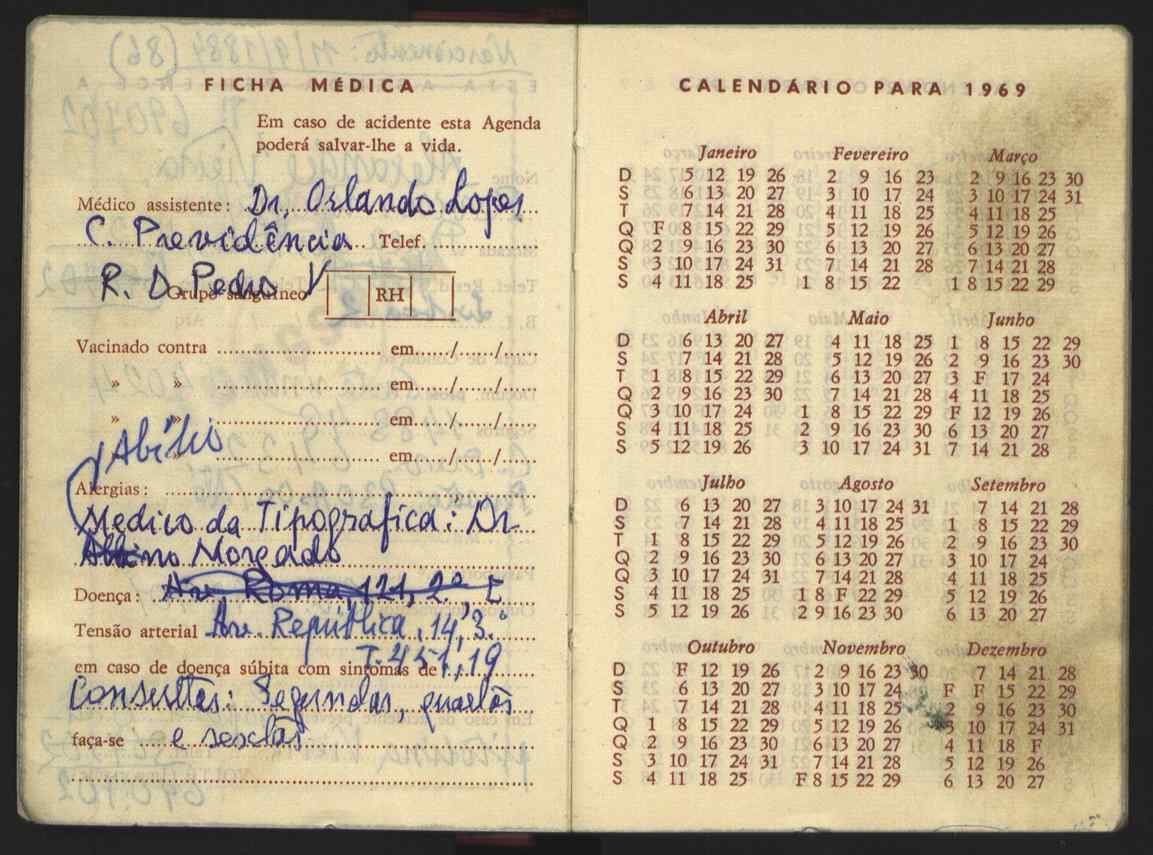 FICHA MÉDICA
Em caso de acidente esta Agenda
poderá salvar-lhe a vida.
Médico assistente: Dr. Orlando Lopes
C. Previdência Telef.
R. D Pedro V Grupo sanguíneo RH
Vacinado contra ........ em....../....../......
» » ........ em....../....../......
» » ........ em....../....../......
Abílio » ........ em....../....../......
Alergias:
Medico da Tipografica: Dr
Albino Morgado
Doença: Av. Roma, 121, 2º E
Tensão arterial Av. República, 14, 3.º
em caso de doença súbita com sintomas de T. 451,19
Consultas: Segundas, quartas
faça-se e sextas
CALENDÁRIO PARA 1969
Janeiro Fevereiro Março
D 5 12 19 26 2 9 16 23 2 9 16 23 30
S 6 13 20 27 3 10 17 24 3 10 17 24 31
T 7 14 21 28 4 11 18 25 4 11 18 25
Q F 8 15 22 29 5 12 19 26 5 12 19 26
Q 2 9 16 23 30 6 13 20 27 6 13 20 27
S 3 10 17 24 31 7 14 21 28 7 14 21 28
S 4 11 18 25 1 8 15 22 1 8 15 22 29
Abril Maio Junho
D 6 13 20 27 4 11 18 25 1 8 15 22 29
S 7 14 21 28 5 12 19 26 2 9 16 23 30
T 1 8 15 22 29 6 13 20 27 3 F 17 24
Q 2 9 16 23 30 7 14 21 28 4 11 18 25
Q 3 10 17 24 1 8 15 22 29 F 12 19 26
S 4 11 18 25 2 9 16 23 30 6 13 20 27
S 5 12 19 26 3 10 17 24 31 7 14 21 28
Julho Agosto Setembro
D 6 13 20 27 3 10 17 24 31 7 14 21 28
S 7 14 21 28 4 11 18 25 1 8 15 22 29
T 1 8 15 22 29 5 12 19 26 2 9 16 23 30
Q 2 9 16 23 30 6 13 20 27 3 10 17 24
Q 3 10 17 24 31 7 14 21 28 4 11 18 25
S 4 11 18 25 1 8 F 22 29 5 12 19 26
S 5 12 19 26 2 9 16 23 30 6 13 20 27
Outubro Novembro Dezembro
D F 12 19 26 2 9 16 23 30 7 14 21 28
S 6 13 20 27 3 10 17 24 F F 15 22 29
T 7 14 21 28 4 11 18 25 2 9 16 23 30
Q 1 8 15 22 29 5 12 19 26 3 10 17 24 31
Q 2 9 16 23 30 6 13 20 27 4 11 18 F
S 3 10 17 24 31 7 14 21 28 5 12 19 26
S 4 11 18 25 F 8 15 22 29 6 13 20 27